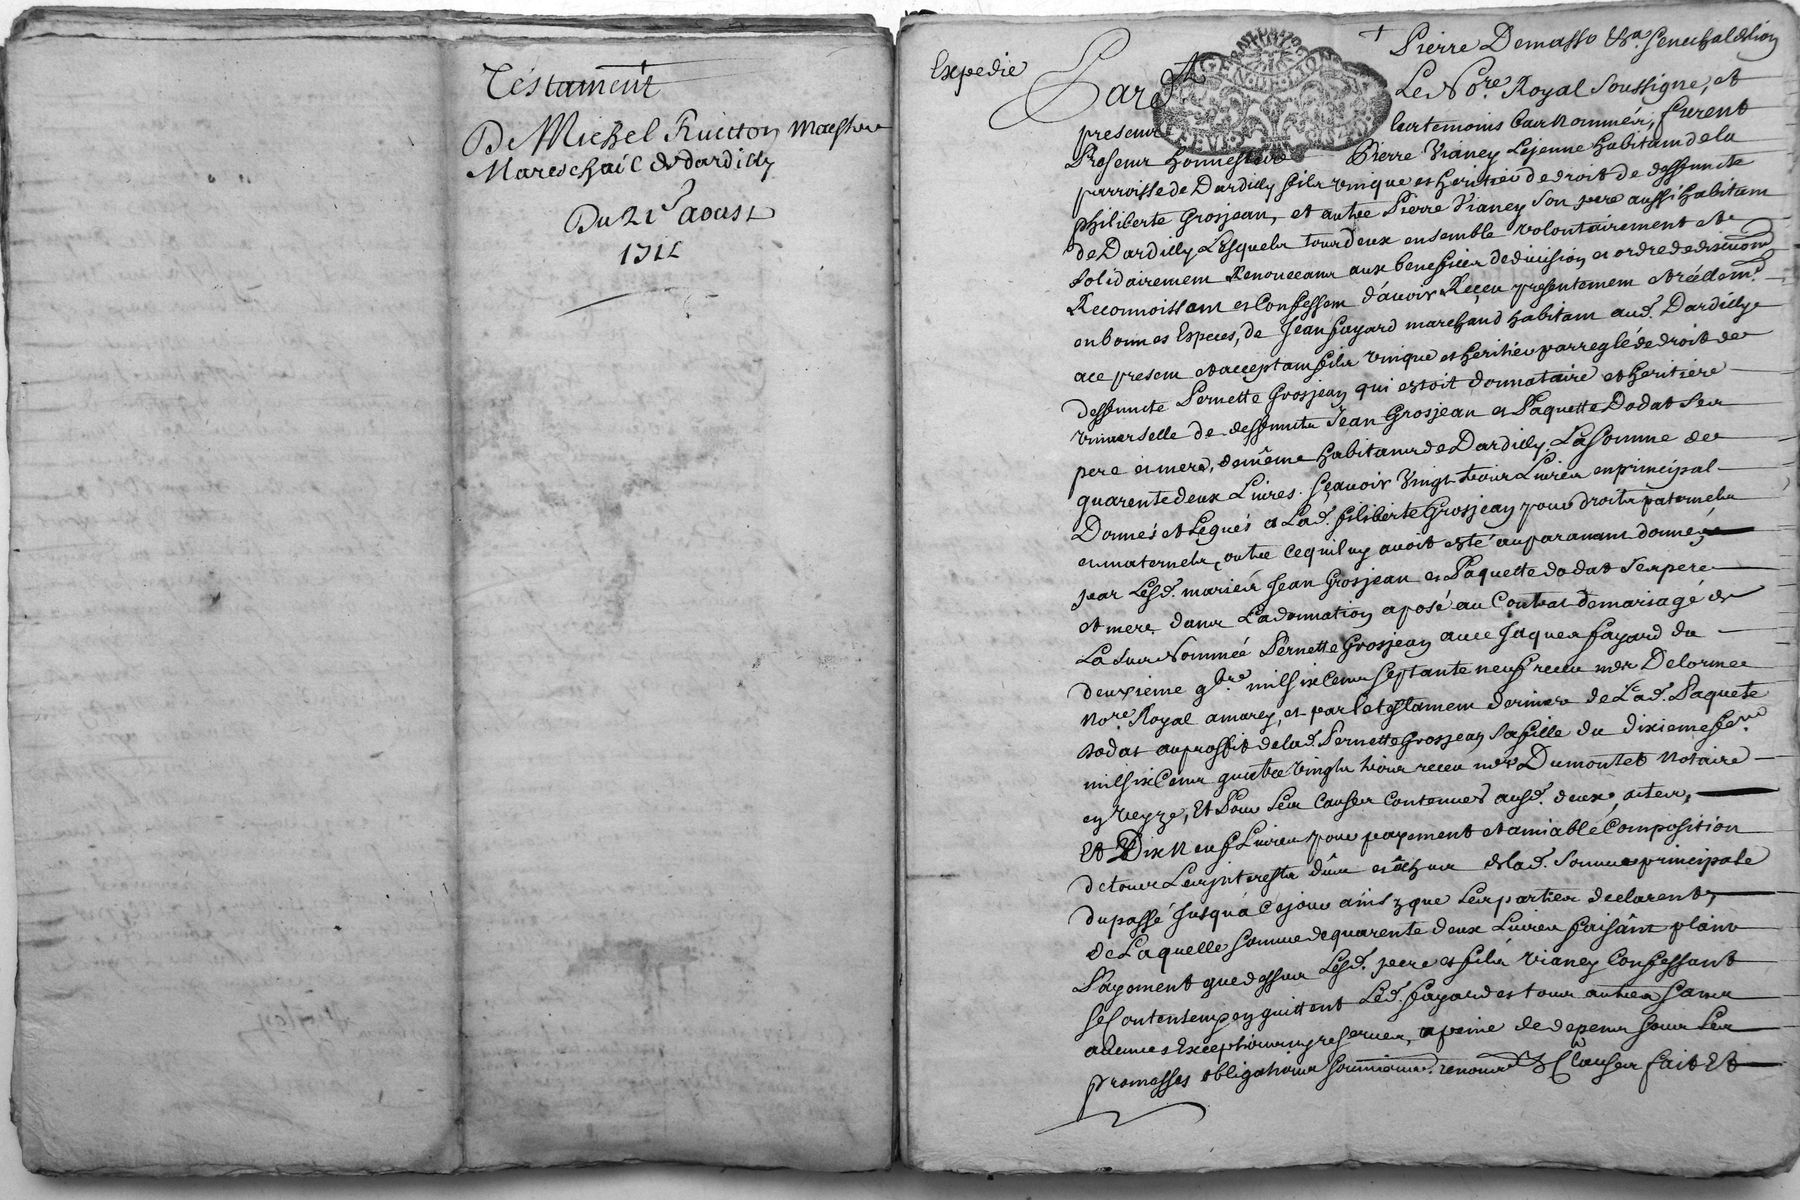 Testament
De Michel Ruitton maistre
Mareschail de dardilly
Du 21e aoust
1712
Expedié
Pierre Demasso senechal de Lion
Pard
Le Nore. Royal soussigné, et
presence
les temoins bas nommés, furent
Presents honnestes Pierre Vianey Lejeune habitant de la
parroisse de Dardilly fils unique et heritier de droit de deffuncte
philiberte Grosjean, et autre Pierre Vianey son pere aussi habitant
de Dardilly Lesquels tous deux ensemble volontairement et
solidairement Renonceant aux benefices de division et ordre de discution
Reconnoissent et Confessent d'avoir Reçeu presentement et réellemt.
en bonnes Especes, de Jean fayard marchand habitant aud. Dardilly
ace present et acceptant fils unique et heritier par reglé de droit de
deffuncte Pernette Grosjean qui estoit donnataire et heritiere
universelle de deffuncts Jean Grosjean et Paquette Dodat ses
pere et mere, de même habitants de Dardilly. La somme de
quarente deux Livres. sçavoir Vingt trois Livres en principal
Donnés et Legués a Lad. filiberte Grosjean pour droits paternels
et maternels, outre ce qui luy avoit esté auparavant donné
par Lesd. mariés Jean Grosjean et Paquette dodat ses pere
et mere dans La donnation aposé au Contrat de mariagé de
La sus Nommée Pernette Grosjean avec Jaques fayard du
deuxieme 9bre. mil six Cents septante neuf receu mer Delorme
Nore. Royal amarey, et par le testament dernier de Lad. Paquete
dodat au proffit de lad. Pernette Grosjean sa fille du dixieme
mil six Cents quatre vingts trois receu mer Dumontet Notaire
en Veyze, Et Pour les causes contenues ausd. deux actes,
Et Dix Neuf Livres pour payement et amiable Composition
de tous Les interests dûs et échus de lad. somme principale
du passé Jusqu'a Ce jour ainsy que Les parties declarent,
de Laquelle somme de quarente deux Livres faisant plein
Payement que dessus Lesd. pere et fils Vianey Confessant
se Contentemp en quittent Led. fayard et tous autres sans
aucunes Exceptions ny reserves, a peine de depens sous les
promesses obligations soumissions. renons & Clauses fait Et